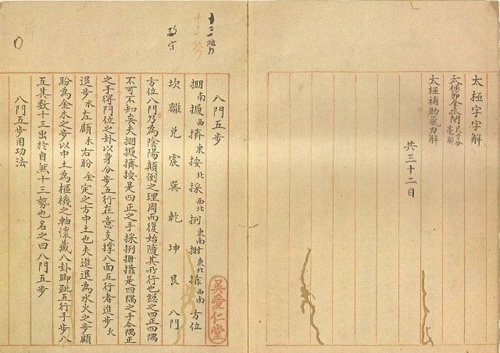 太極字字解
太極節拿抓閉尺寸分毫解
太極補助氣力解
共三十二目
八門五步
掤南 西 擠東 按北 採西北 挒東南 東北 西南 方位
坎 離 兌 震 巽 乾 坤 艮 八門
方位八門乃為陰陽顛倒之理周而復始隨其所行也總之四正四隅
不可不知矣夫掤擠按是四正之手採挒是四隅之手合隅正
之手得門位之卦以身分步五行在意支撐八面五行者進步火
退步水左顧木右盼金定之方中土也夫進退為水火之步顧
盼為金木之步以中土為樞機之軸懷藏八卦脚跐五行手步八
五其數十三出於自然十三勢也名之曰八門五步
八門五步用功法
吳愛仁堂